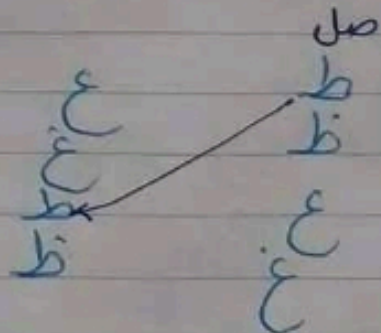 صل
ط
ظ
ع
غ
ع
غ
ط
ظ